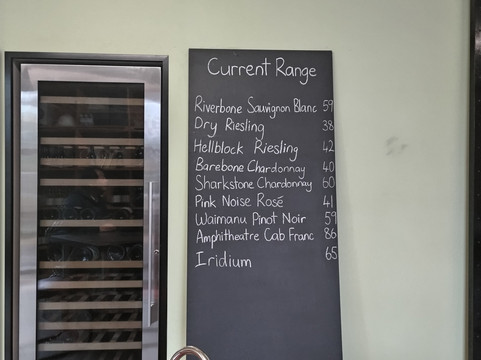 Current Range
Riverbone Sauvignon Blanc 59
Dry Riesling 38
Hellblock Riesling 42
Barebone Chardonnay 40
Sharkstone Chardonnay 60
Pink Noise Rosé 41
Waimanu Pinot Noir 59
Amphitheatre Cab Franc 86
Iridium 65